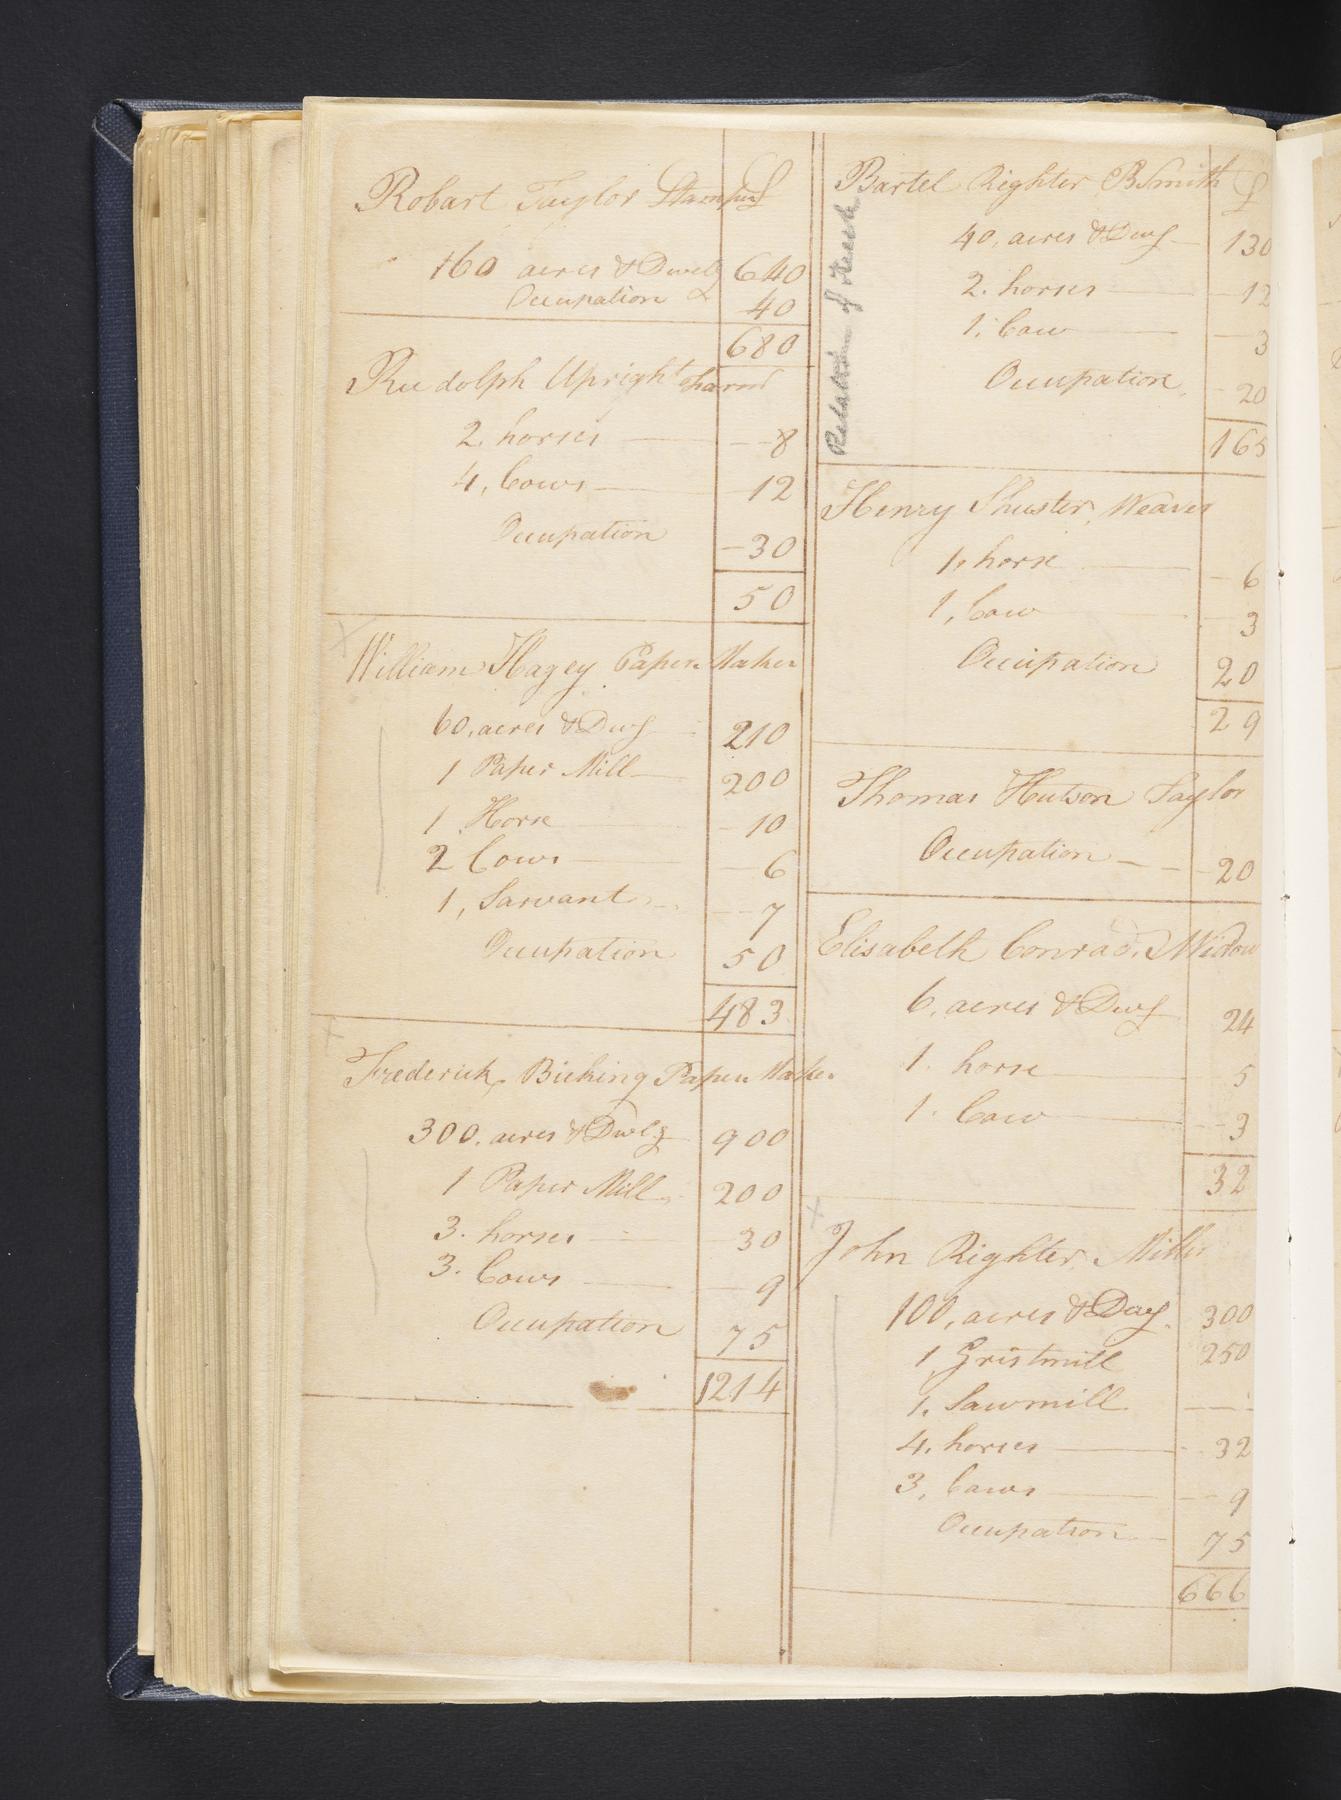 Robart Taylor Stamper £
160 acres & Dwelg 640
Occupation & 40
680
Rudolph Upright
2. horses 8
4, Cows 12
Occupation 30
50
William Hagey Paper Maker
60, acres & Dwg 210
1 Paper Mill 200
1 Horse 10
2 Cows 6
1, Sarvant 7
Occupation 50
483
Frederick Bicking Paper Maker
300. acres & Dwlg 900
1 Paper Mill 200
3. horses 30
3. Cows 9
Occupation 75
1214
Bartel Righter BSmith £
40, acres & Dwg 130
2. horses 12
1. Cow 3
Occupation 20
165
Relation of
Henry Shuster, Weaver
1, horse 6
1, Cow 3
Occupation 20
29
Thomas Hutson Taylor
Occupation 20
Elisabeth Conrad, Widow
6, acres & Dwg 24
1. horse 5
1. Cow 3
32
John Righter, Miller
100, acres & Dwg. 300
1, Gristmill 250
1. Sawmill
4. horses 32
3, Cows 9
Occupation 75
666